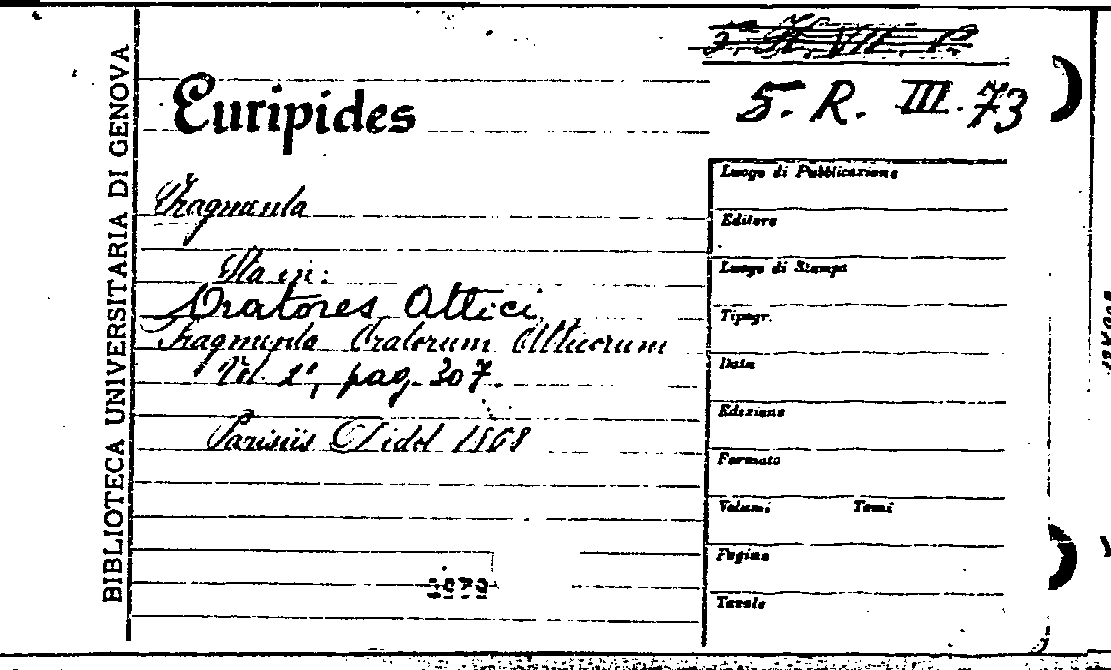 BIBLIOTECA UNIVERSITARIA DI GENOVA
5. R. III. 73
Euripides
Fragmenta
Sta in:
Oratores Attici
Fragmenta Oratorum Atticorum
Vol. 2°, pag. 307.
Parisiis Didot 1868
Luogo di Pubblicazione
Editore
Luogo di Stampa
Tipogr.
Data
Edizione
Formato
Volumi Tomi
Pagine
Tavole